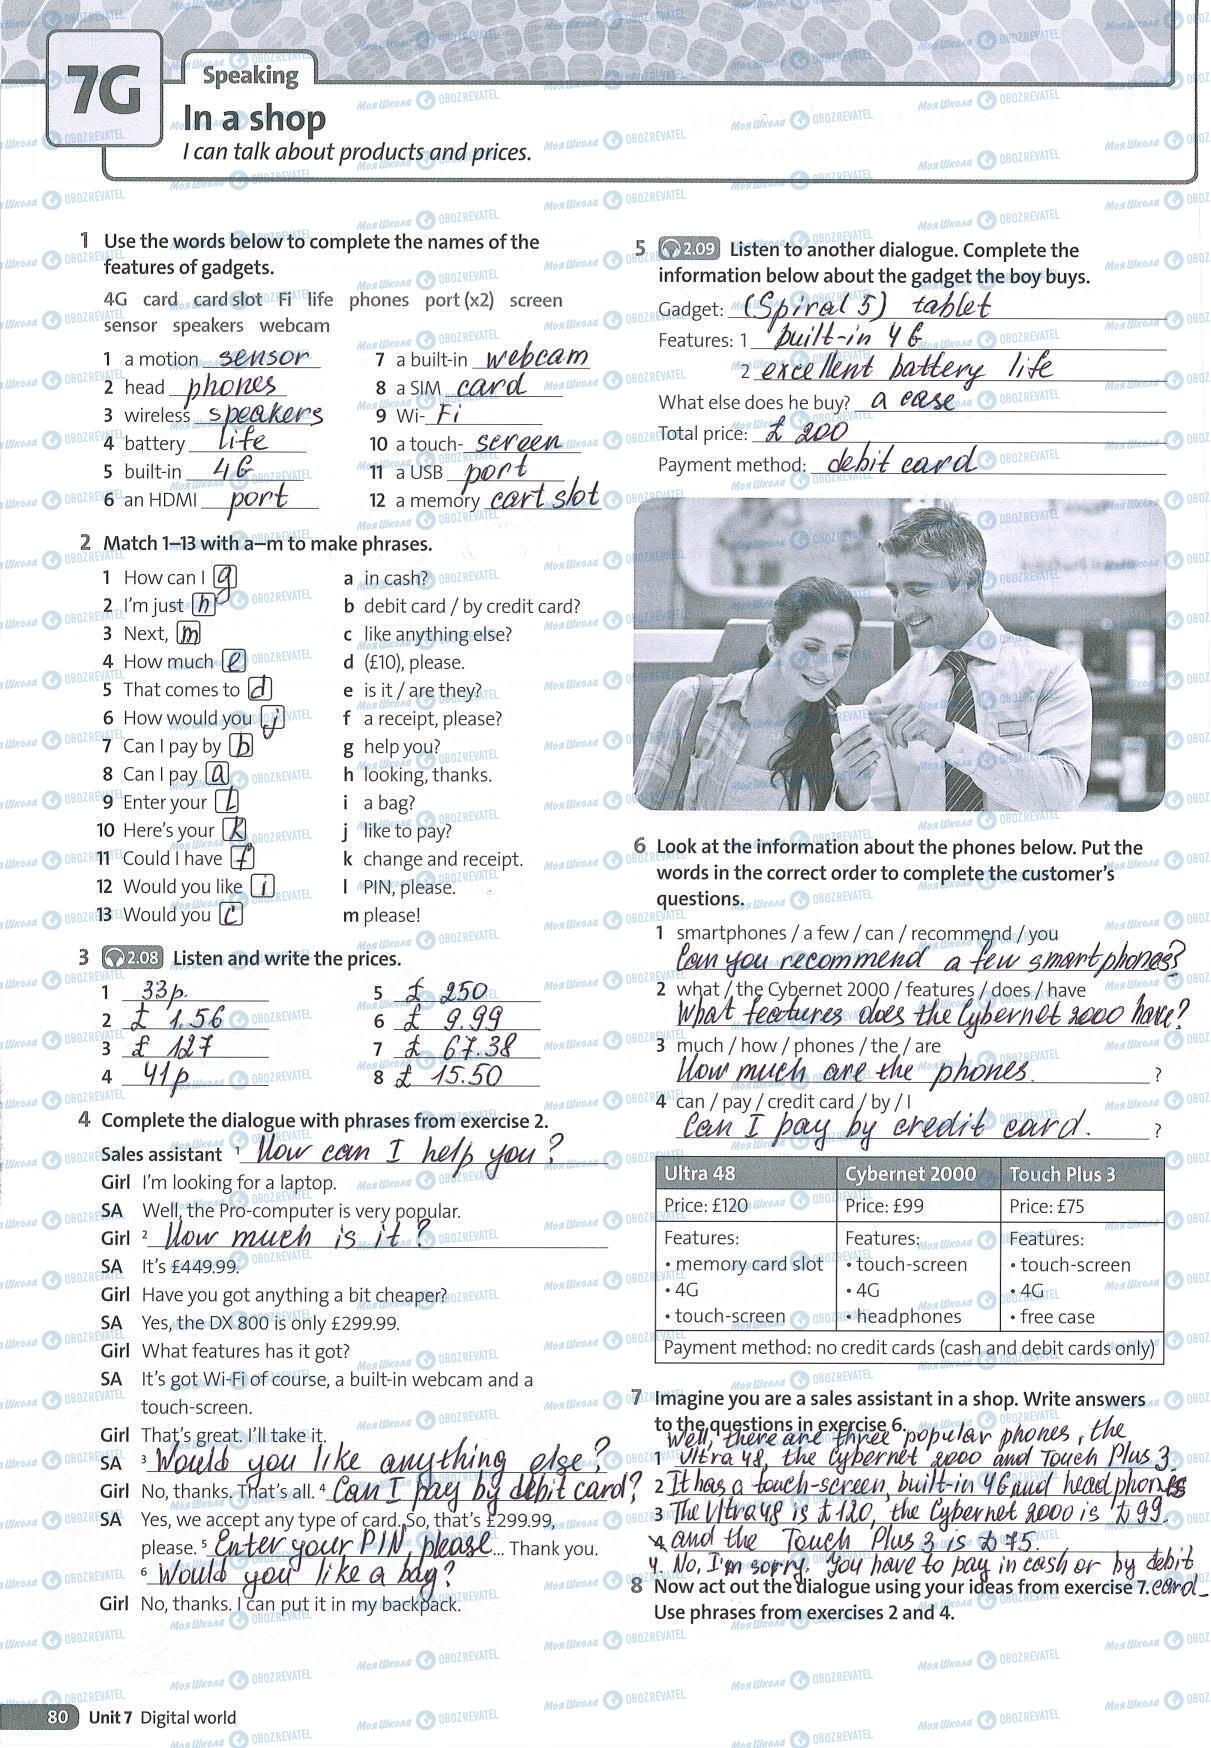 7G
Speaking
In a shop
I can talk about products and prices.
1 Use the words below to complete the names of the
features of gadgets.
4G card card slot Fi life phones port (x2) screen
sensor speakers webcam
1 a motion sensor
2 head phones
3 wireless speakers
4 battery life
5 built-in 4G
6 an HDMI port
7 a built-in webcam
8 a SIM card
9 Wi- Fi
10 a touch- screen
11 a USB port
12 a memory cart slot
2 Match 1–13 with a–m to make phrases.
1 How can I g
2 I'm just h
3 Next, m
4 How much e
5 That comes to d
6 How would you j
7 Can I pay by b
8 Can I pay a
9 Enter your l
10 Here's your k
11 Could I have f
12 Would you like i
13 Would you c
a in cash?
b debit card / by credit card?
c like anything else?
d (£10), please.
e is it / are they?
f a receipt, please?
g help you?
h looking, thanks.
i a bag?
j like to pay?
k change and receipt.
l PIN, please.
m please!
3 2.08 Listen and write the prices.
1 33p.
2 £ 1.56
3 £ 127
4 41p
5 £ 250
6 £ 9.99
7 £ 67.38
8 £ 15.50
4 Complete the dialogue with phrases from exercise 2.
Sales assistant 1 How can I help you?
Girl I'm looking for a laptop.
SA Well, the Pro-computer is very popular.
Girl 2 How much is it?
SA It's £449.99.
Girl Have you got anything a bit cheaper?
SA Yes, the DX 800 is only £299.99.
Girl What features has it got?
SA It's got Wi-Fi of course, a built-in webcam and a
touch-screen.
Girl That's great. I'll take it.
SA 3 Would you like anything else?
Girl No, thanks. That's all. 4 Can I pay by debit card?
SA Yes, we accept any type of card. So, that's £299.99,
please. 5 Enter your PIN, please... Thank you.
6 Would you like a bag?
Girl No, thanks. I can put it in my backpack.
5 2.09 Listen to another dialogue. Complete the
information below about the gadget the boy buys.
Gadget: (Spiral 5) tablet
Features: 1 built-in 4G
2 excellent battery life
What else does he buy? a case
Total price: £ 200
Payment method: debit card
6 Look at the information about the phones below. Put the
words in the correct order to complete the customer's
questions.
1 smartphones / a few / can / recommend / you
Can you recommend a few smartphones?
2 what / the Cybernet 2000 / features / does / have
What features does the Cybernet 2000 have?
3 much / how / phones / the / are
How much are the phones. ?
4 can / pay / credit card / by / I
Can I pay by credit card. ?
Ultra 48 Cybernet 2000 Touch Plus 3
Price: £120 Price: £99 Price: £75
Features: Features: Features:
• memory card slot • touch-screen • touch-screen
• 4G • 4G • 4G
• touch-screen • headphones • free case
Payment method: no credit cards (cash and debit cards only)
7 Imagine you are a sales assistant in a shop. Write answers
to the questions in exercise 6.
Well, there are three popular phones, the
1 Ultra 48, the Cybernet 2000 and Touch Plus 3.
2 It has a touch-screen, built-in 4G and headphones
3 The Ultra 48 is £120, the Cybernet 2000 is £99.
4 and the Touch Plus 3 is £75.
4. No, I'm sorry. You have to pay in cash or by debit
card.
8 Now act out the dialogue using your ideas from exercise 7.
Use phrases from exercises 2 and 4.
80 Unit 7 Digital world
Моя Школа OBOZREVATEL